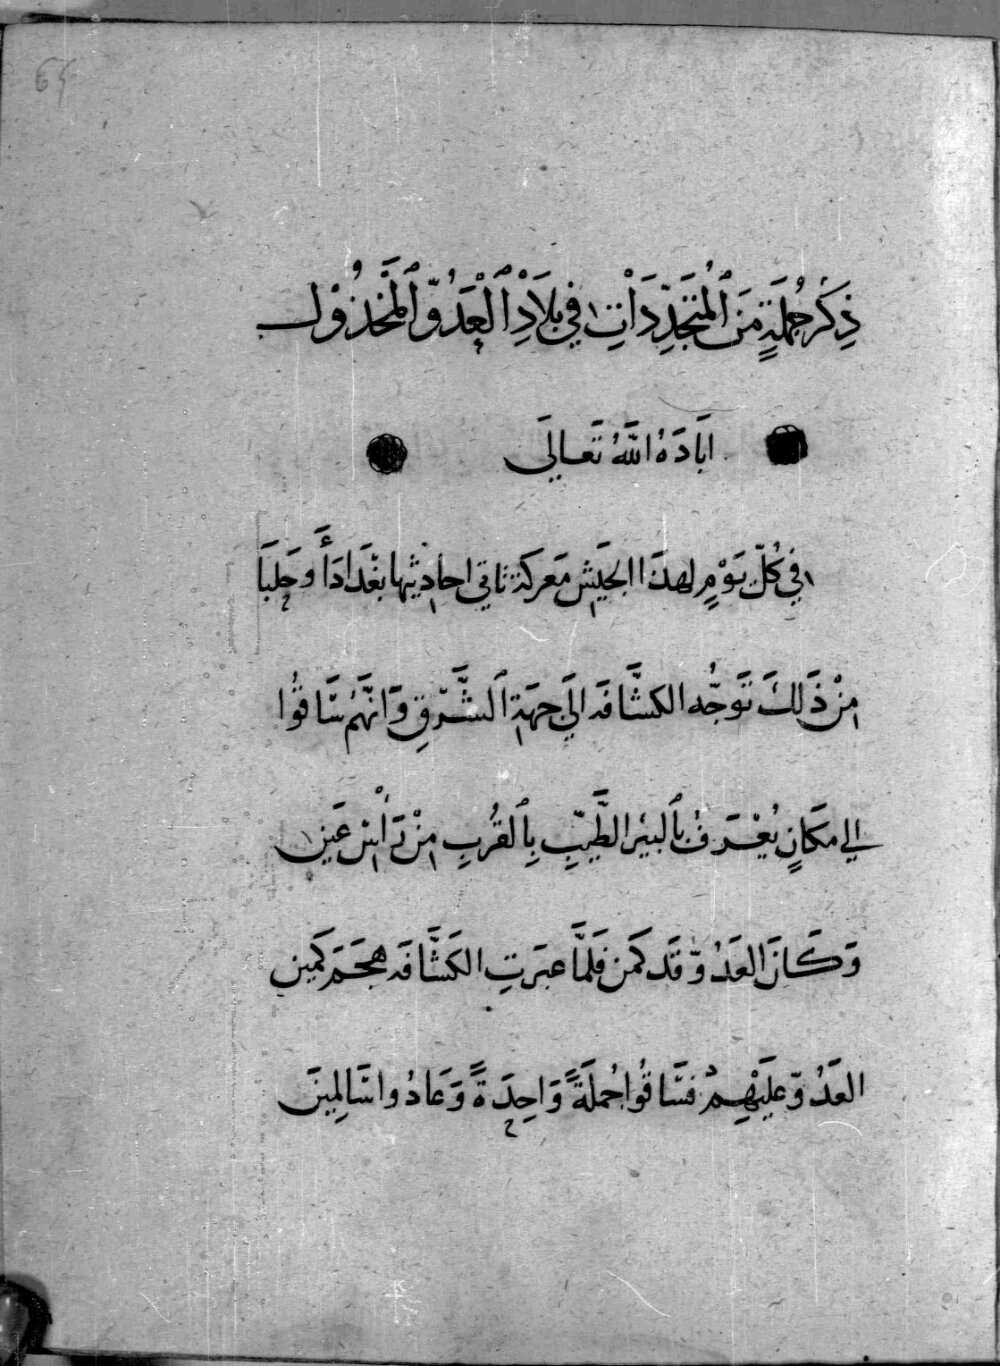 64
ذِكْرُ جُمْلَةٍ مِنَ ٱلْمُتَجَدِّدَاتِ فِي بِلَادِ ٱلْعَدُوِّ ٱلْمَخْذُوْلِ
اَبَادَهُ اللّٰهُ تَعَالَى
فِي كُلِّ يَوْمٍ لهذَا الجَيْشِ مَعركَة تاتي احاديثها بَغْدَاداً وحَلبَا
مِنْ ذَلكَ تَوَجُّه الكشَّافَه الَى جِهَةِ ٱلشَّرْقِ وَانَّهُمْ سَاقُوا
الي مكَانٍ يُعْرَفُ بِٱلبيْر الطَّيِّبِ بِٱلقُربِ مِنْ رَأْسِ عَيْنٍ
وَكَانَ العَدُوّ قَد كَمن فَلَمَّا عبَرَتِ الكَشَّافَه هجَمَ كَمِين
العَدُوّ عَلَيْهِمْ فسَاقُوا جُملَةً وَاحِدَةً وَعَادُوا سَالِمِينَ